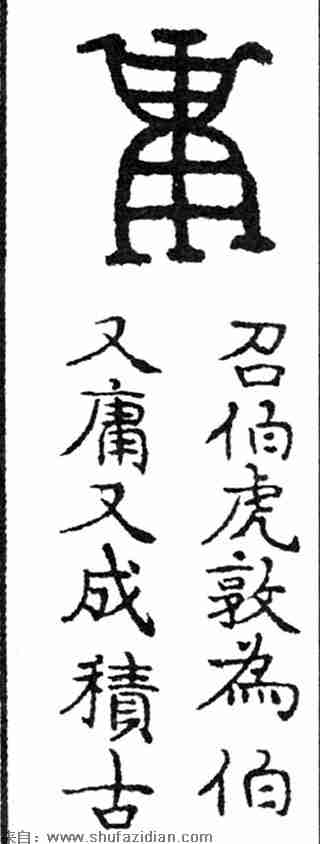 庸
召伯虎敦為伯
又庸又成積古
来自：www.shufazidian.com